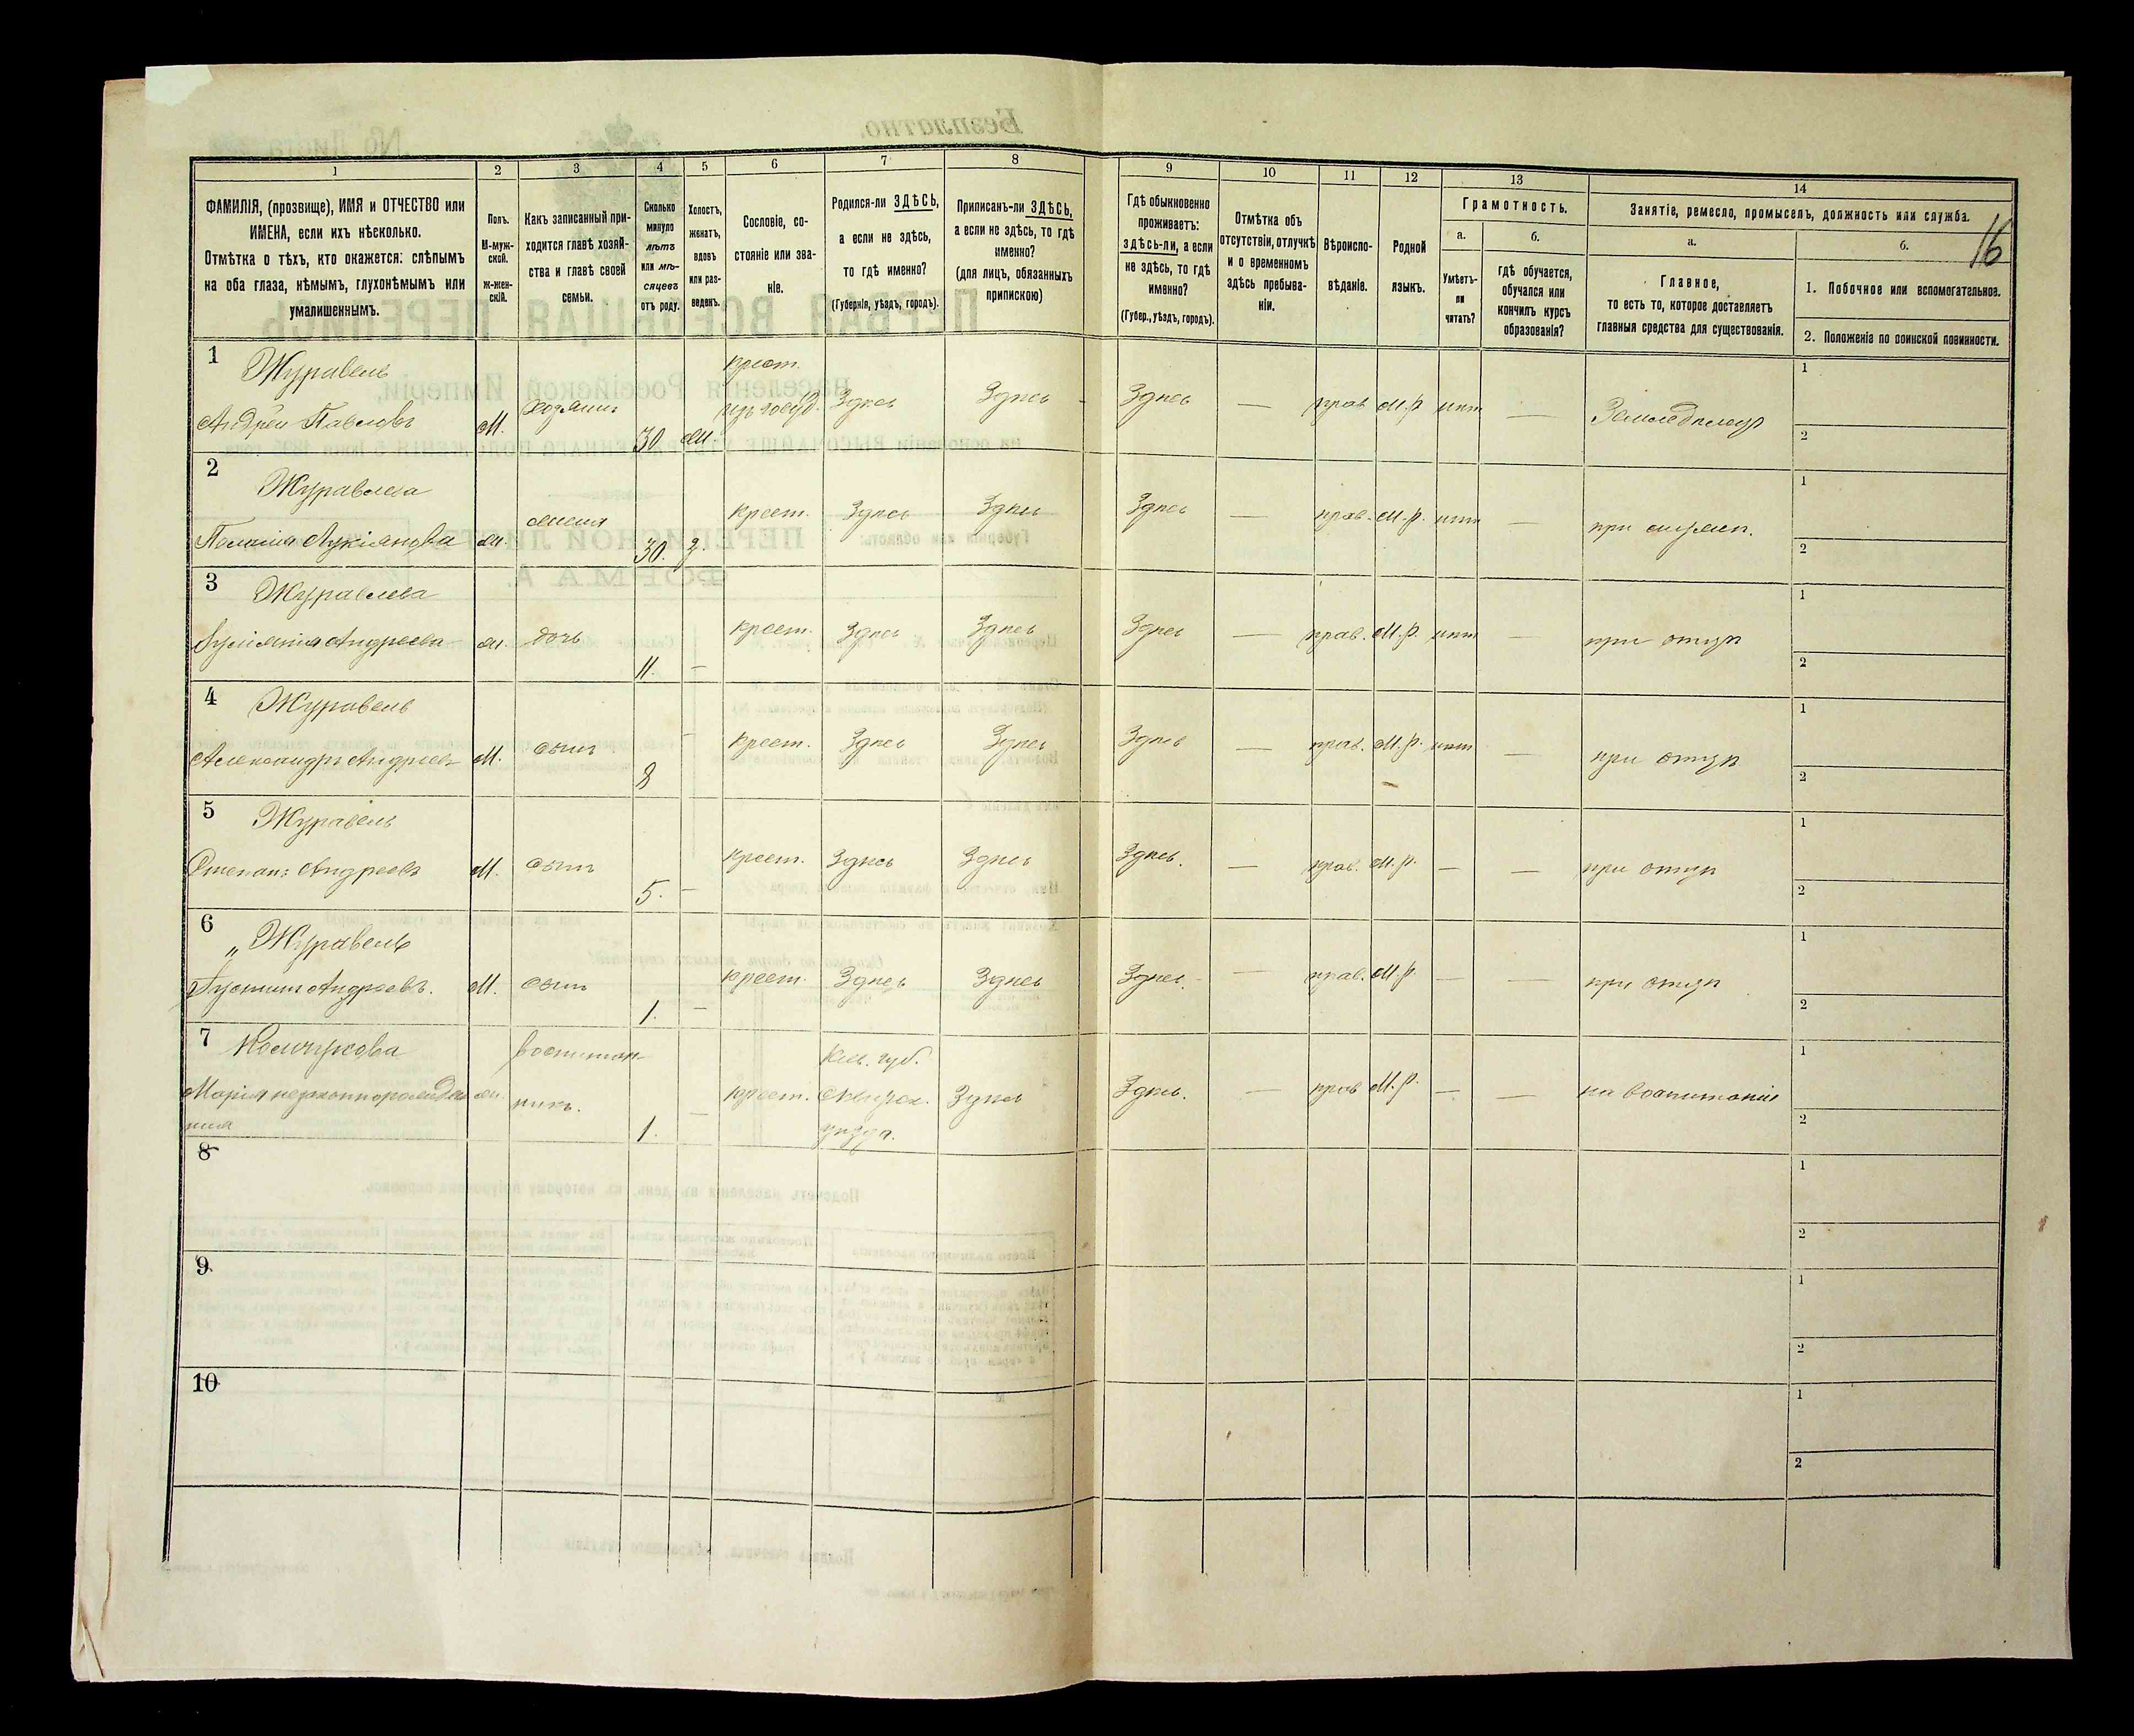 1
2
3
4
5
6
7
8
9
10
11
12
13
14
ФАМИЛІЯ, (прозвище), ИМЯ и ОТЧЕСТВО или
ИМЕНА, если ихъ нѣсколько.
Отмѣтка о тѣхъ, кто окажется: слѣпымъ
на оба глаза, нѣмымъ, глухонѣмымъ или
умалишеннымъ.
Полъ.
М-муж-
ской.
ж-жен-
скій.
Какъ записанный при-
ходится главѣ хозяй-
ства и главѣ своей
семьи.
Сколько
минуло
лѣтъ
или мѣ-
сяцевъ
отъ роду.
Холостъ,
женатъ,
вдовъ
или раз-
веденъ.
Сословіе, со-
стояніе или зва-
ніе.
Родился-ли ЗДѢСЬ,
а если не здѣсь,
то гдѣ именно?
(Губернія, уѣздъ, городъ).
Приписанъ-ли ЗДѢСЬ,
а если не здѣсь, то гдѣ
именно?
(для лицъ, обязанныхъ
припискою)
Гдѣ обыкновенно
проживаетъ:
здѣсь-ли, а если
не здѣсь, то гдѣ
именно?
(Губер., уѣздъ, городъ).
Отмѣтка объ
отсутствіи, отлучкѣ
и о временномъ
здѣсь пребыва-
ніи.
Вѣроиспо-
вѣданіе.
Родной
языкъ.
Грамотность.
а.
Умѣетъ-
ли
читать?
б.
гдѣ обучается,
обучался или
кончилъ курсъ
образованія?
Занятіе, ремесло, промыселъ, должность или служба.
16
а.
Главное,
то есть то, которое доставляетъ
главныя средства для существованія.
б.
1. Побочное или вспомогательное.
2. Положеніе по воинской повинности.
1 Журавель крест. 1
Андрей Павловъ М. хозяинъ 30 Здѣсь Здѣсь Здѣсь — прав М.р нѣт — Земледѣлецъ 2
2 Журавлева 1
Лукіянова жена 30. З. крест. Здѣсь Здѣсь Здѣсь — прав. М.р. нѣт — при мужѣ. 2
3 Журавлева 1
Андреева дочь 11. — крест. Здѣсь Здѣсь Здѣсь — прав. М.р. нѣт — при отцѣ 2
4 Журавель 1
Александръ Андреевъ М. сынъ 8 — крест. Здѣсь Здѣсь Здѣсь — прав. М.р. нѣт — при отцѣ 2
5 Журавель 1
Степанъ Андреевъ М. сынъ 5. — крест. Здѣсь Здѣсь Здѣсь. — прав. М.р. — — при отцѣ 2
6 „ Журавель 1
Андреевъ. М. сынъ 1. — крест. Здѣсь Здѣсь Здѣсь. — прав. М.р. — — при отцѣ 2
7 воспитан- Кіев. губ. 1
Марія никъ. 1. — крест. Сквирск. Здѣсь Здѣсь. — прав М.р. — — на воспитаніи 2
уѣзда.
8 1
2
9 1
2
10 1
2